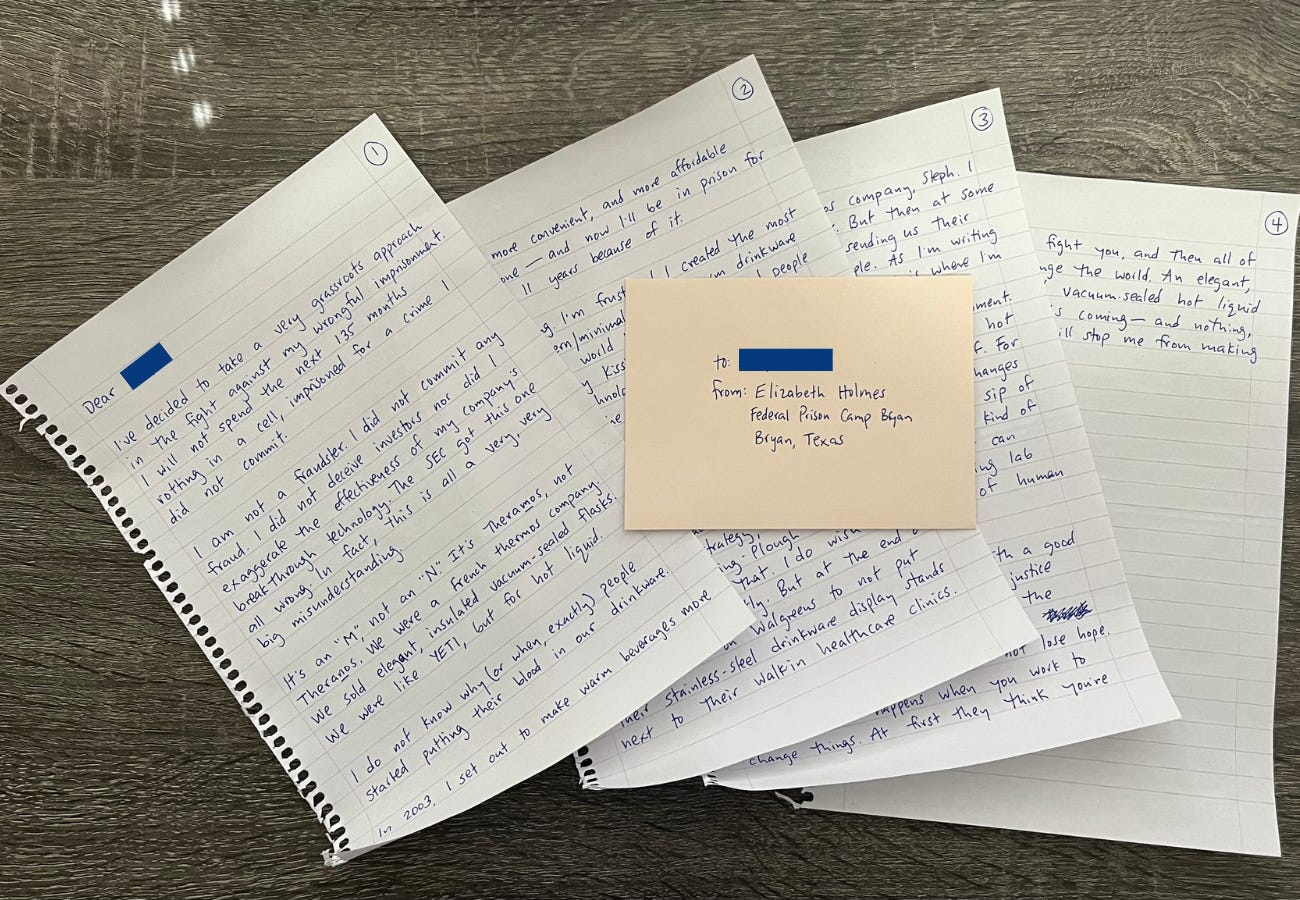 1
Dear
I've decided to take a very grassroots approach
in the fight against my wrongful imprisonment.
I will not spend the next 135 months
rotting in a cell, imprisoned for a crime I
did not commit.
I am not a fraudster. I did not commit any
fraud. I did not deceive investors nor did I
exaggerate the effectiveness of my company's
breakthrough technology. The SEC got this one
all wrong. In fact, this is all a very, very
big misunderstanding.
It's an "M", not an "N." It's Theramos, not
Theranos. We were a French thermos company.
We sold elegant, insulated vacuum-sealed flasks.
We were like YETI, but for hot liquid.
I do not know why (or when, exactly) people
started putting their blood in our drinkware.
In 2003, I set out to make warm beverages more
2
more convenient, and more affordable
one — and now I'll be in prison for
11 years because of it.
I'm
I created the most
drinkware
people
world
that. I do wish
But at the end
Walgreens to not put
their stainless-steel drinkware display stands
next to their walk-in healthcare clinics.
3
company, Steph. I
But then at some
sending us their
As I'm writing
where I'm
hot
For
sip of
kind of
can
lab
of human
a good
justice
the
not lose hope.
happens when you work to
change things. At first they think you're
4
fight you, and then all of
the world. An elegant,
vacuum-sealed hot liquid
coming — and nothing,
stop me from making
to:
from: Elizabeth Holmes
Federal Prison Camp Bryan
Bryan, Texas